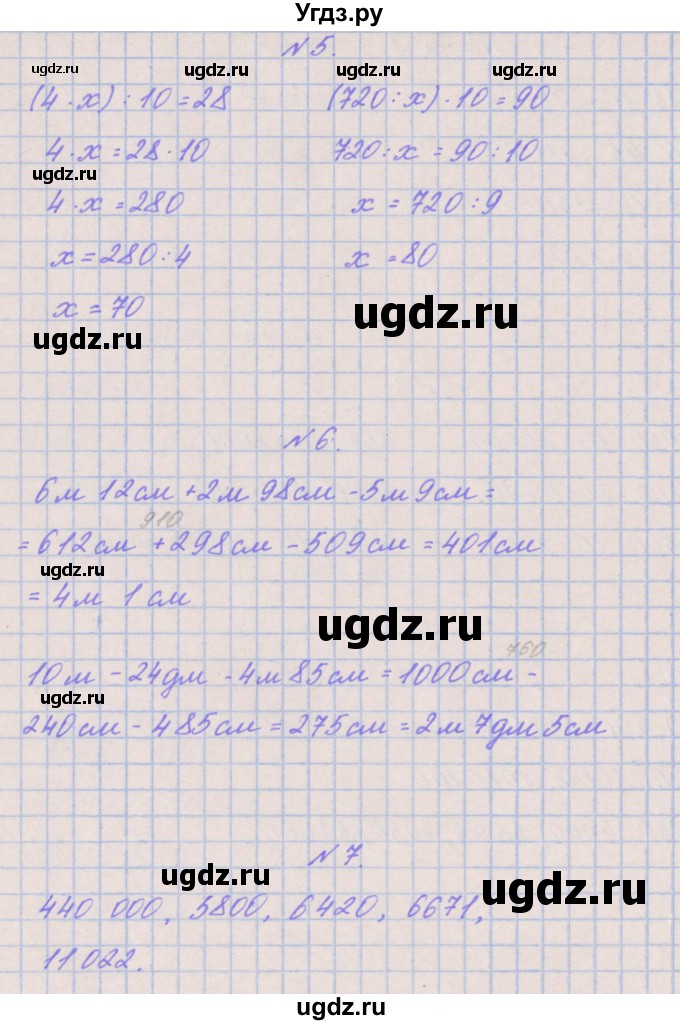 Угдз.ру
N 5.
ugdz.ru ugdz.ru ugdz.ru ugdz.ru
(4 · x) : 10 = 28 (720 : x) · 10 = 90
4 · x = 28 · 10 720 : x = 90 : 10
ugdz.ru
4 · x = 280 x = 720 : 9
x = 280 : 4 x = 80
x = 70
ugdz.ru
ugdz.ru
N 6.
6м 12см + 2м 98см - 5м 9см =
910
= 612см + 298см - 509см = 401см
ugdz.ru
= 4м 1см
ugdz.ru
760
10м - 24дм - 4м 85см = 1000см -
ugdz.ru
240см - 485см = 275см = 2м 7дм 5см
N 7.
ugdz.ru
ugdz.ru
440 000, 5800, 6420, 6671,
11 022.
ugdz.ru